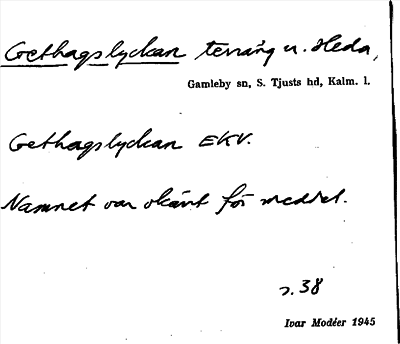 Gethagslyckan terräng u. Heda,
Gamleby sn, S. Tjusts hd, Kalm. l.
Gethagslyckan EKV.
Namnet var okänt för meddel.
s. 38
Ivar Modéer 1945